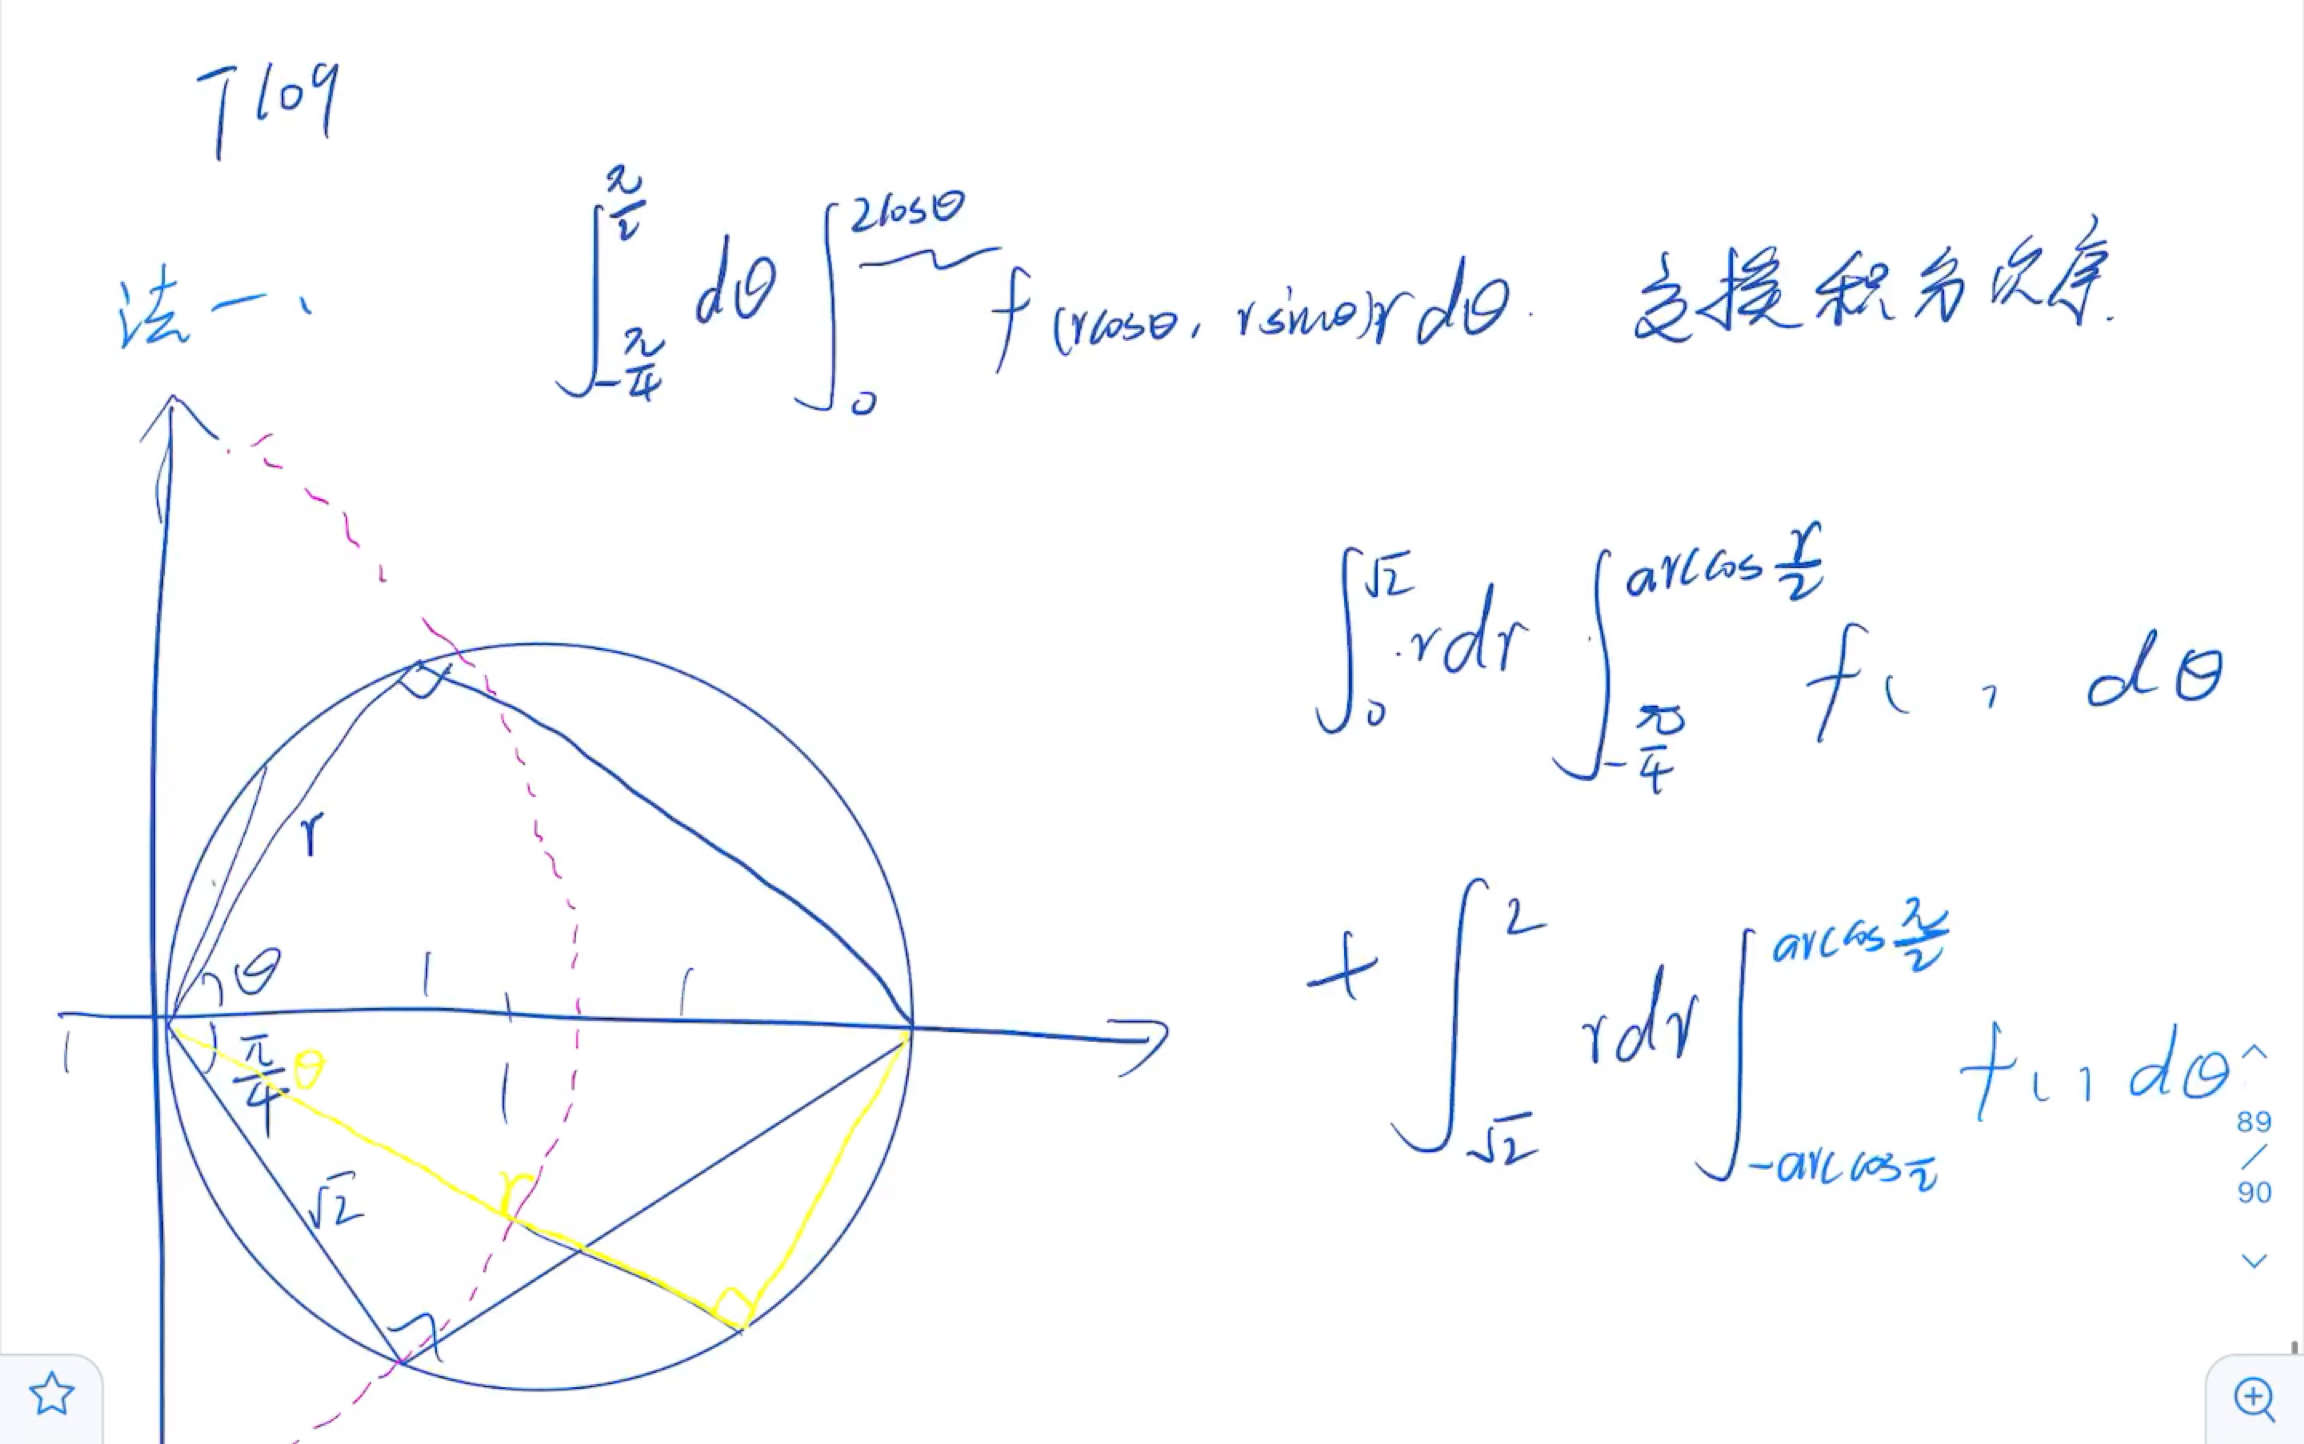 T109
法一、 ∫_{-π/4}^{π/2} dθ ∫_0^{2cosθ} f(rcosθ, rsinθ)r dθ. 交换积分次序.
∫_0^{√2} rdr ∫_{-π/4}^{arccos r/2} f( , dθ
+ ∫_{√2}^{2} rdr ∫_{-arccos 2}^{arccos r/2} f( , dθ
r
θ
1 1
1
π/4 θ
1
r
√2
89
/
90